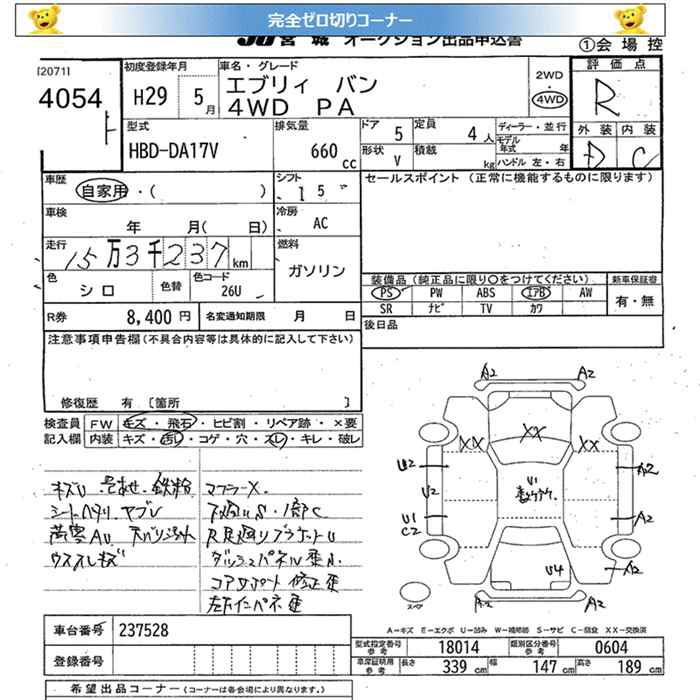 完全ゼロ切りコーナー
JU宮城 オークション出品申込書 ①会場控
[2071]
4054
初度登録年月
H29 5月
車名・グレード
エブリィ バン
4WD PA
2WD
4WD
評価点
R
外装 内装
D C
型式
HBD-DA17V
排気量
660 cc
ドア 5
形状 V
定員 4人
積載 kg
ディーラー・並行
モデル年式 年
ハンドル 左・右
車歴
自家用・( )
シフト
I 5
車検
年 月( 日)
冷房
AC
走行
15万3千237km
燃料
ガソリン
色
シロ
色替
色コード
26U
R券 8,400円
名変通知期限 月 日
セールスポイント (正常に機能するものに限ります)
装備品 (純正品に限り○をつけてください)
新車保証書
PS PW ABS エアB AW
SR ナビ TV カワ
有・無
後日品
注意事項申告欄(不具合内容等は具体的に記入して下さい)
修復歴 有 〔箇所 〕
検査員記入欄
FW キズ・飛石・ヒビ割・リペア跡・×要
内装 キズ・汚レ・コゲ・穴・スレ・キレ・破レ
キズU 鉄粉
シートヘタリ ヤブレ
ウススレキズ
マフラーX
ダッシュパネル
コアサポート 修正
左インパネ
A2 A2
XX XX XX
U2 A2
U2
U1
U1 A2
C2
U4 A2
A2 A2
スペア
A-キズ E-エクボ U-凹み W-補修跡 S-サビ C-腐食 XX-交換済
車台番号 237528
登録番号
型式指定番号 参考 18014
類別区分番号 参考 0604
車庫証明用 参考 長さ 339cm 幅 147cm 高さ 189cm
希望出品コーナー (コーナーは各会場により異なります。)